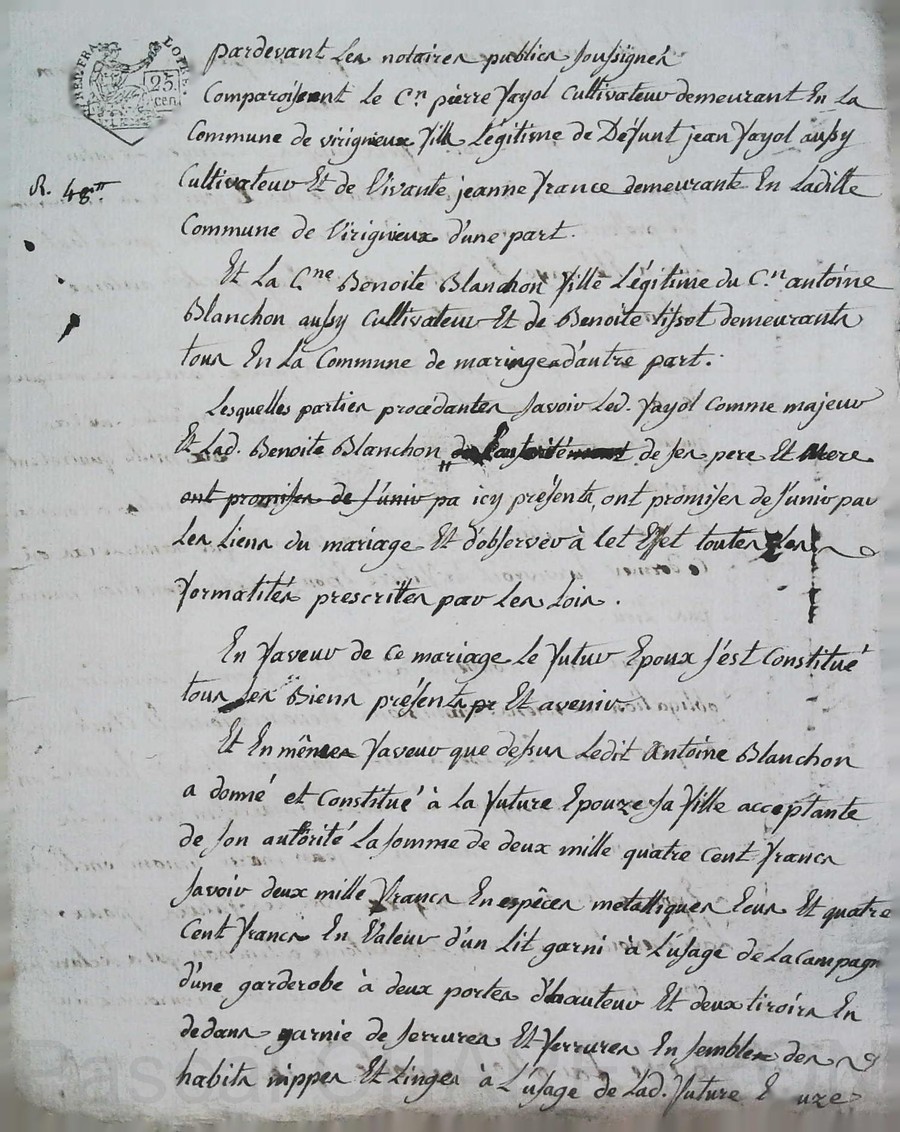 REP. FRA
LOI PE
25
cen.
pardevant les notaires publics soussignés
Comparoissent le C.n pierre fayol Cultivateur demeurant En La
Commune de virigneux fils Légitime de Défunt jean fayol aussy
R. 48tt.
Cultivateur Et de Vivante jeanne france demeurante En Laditte
Commune de Virigneux d'une part.
Et La C.ne Benoite Blanchon fille Légitime du C.en antoine
Blanchon aussy Cultivateur Et de Benoite tissot demeurants
tous En La Commune de maringes d'autre part.
Lesquelles parties procedantes Savoir Led. fayol Comme majeur
Et Lad. Benoite Blanchon de L'autorité de ses pere Et Mere
ont promises de s'unir pa icy présents, ont promises de s'unir par
les liens du mariage Et d'observer à Cet Effet toutes les
formalités prescrittes par Les Lois.
En faveur de Ce mariage Le futur Epoux s'est Constitué
tous ses Biens présents pr Et avenir
Et En mêmes faveur que dessus Ledit Antoine Blanchon
a donné et Constitué à La future Epouze sa fille acceptante
de son autorité La somme de deux mille quatre Cent francs
Savoir deux mille francs En espêces metalliques Ecus Et quatre
Cent francs En Valeur d'un Lit garni à L'usage de La Campagn
d'une garderobe à deux portes d'hauteur Et deux tiroirs En
dedans garnie de serrures Et ferrures En semble des
habits nippes Et Linges à L'usage de Lad. future E uze